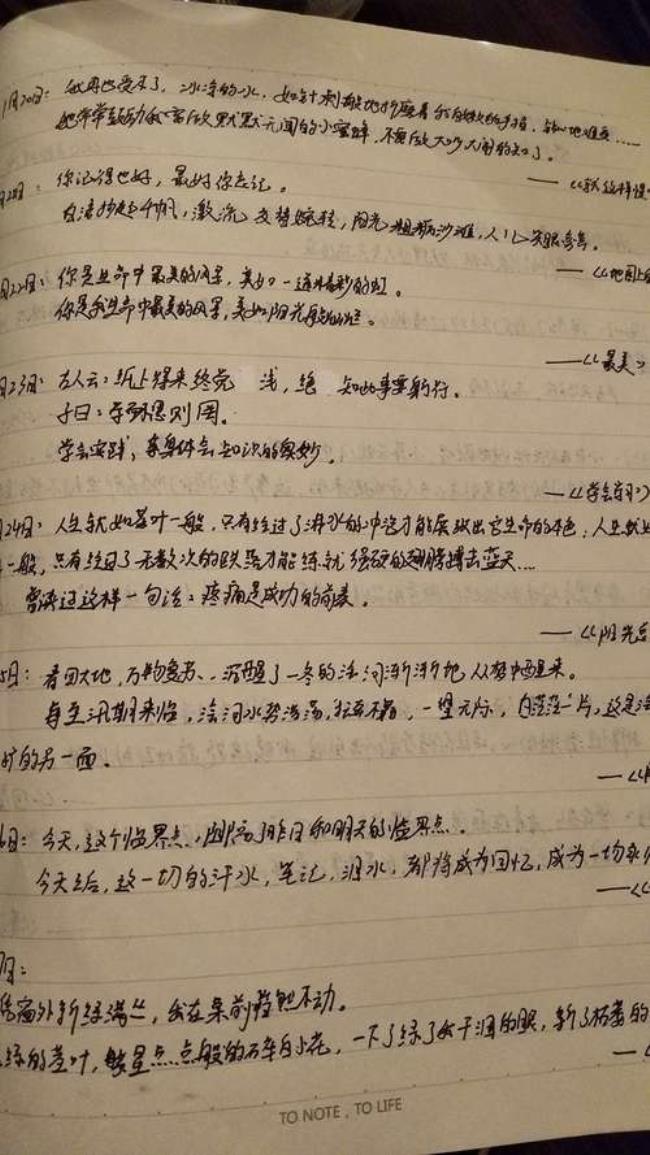 1月20日：我再也受不了，冰冷的水，如针刺般地折磨着我的手指，
她常常鼓动我当做默默无闻的小蜜蜂，不要做大吵大闹的知了。
——《我这样
你记得也好，最好你忘记。
激流 交替婉转，阳光 粗粝沙滩，人
——《地图上
月22日：你是生命中最美的风景，美如一道
你是我生命中最美的风景，美如阳光
——《最美》
月23日：古人云：纸上得来终觉浅，绝知此事要躬行。
子曰：学而不思则罔。
学会实践，亲身体会知识的奥妙。
——《学会学习》
月24日：人生就如茶叶一般，只有经过了沸水的冲泡才能展现出它生命的本色；人生就
一般，只有经过了无数次的跌落才能练就强硬的翅膀搏击蓝天……
曾读过这样一句话：疼痛是成功的前奏。
——《阳光
5日：春回大地，万物复苏，沉醒了一冬的 河渐渐地从梦中醒来。
每至汛期来临， 河水势浩荡， ，一望无际，白茫茫一片，这是
的另一面。
6日：今天，这个临界点， 昨日和明天的临界点。
今天之后，这一切的汗水，笔记，泪水，都将成为回忆，成为一切
——《
日：
窗外新绿满 ，我在桌前 不动。
绿的茎叶，繁星点点般的 白小花，一下了绿了 干涸的眼，新了枯萎的
TO NOTE , TO LIFE